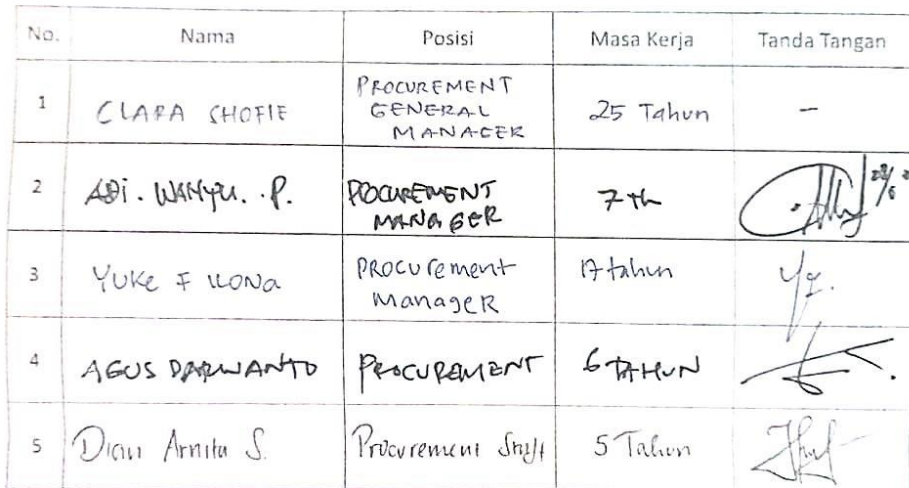 No. Nama Posisi Masa Kerja Tanda Tangan
1 CLARA SHOFIE PROCUREMENT GENERAL MANAGER 25 Tahun -
2 ADI. WAHYU. P. PROCUREMENT MANAGER 7 th
3 YUKE F ILONA PROCUrement ManageR 17 tahun
4 AGUS DARWANTO PROCUREMENT 6 TAHUN
5 Dian Arnita S. Procurement Staff 5 Tahun